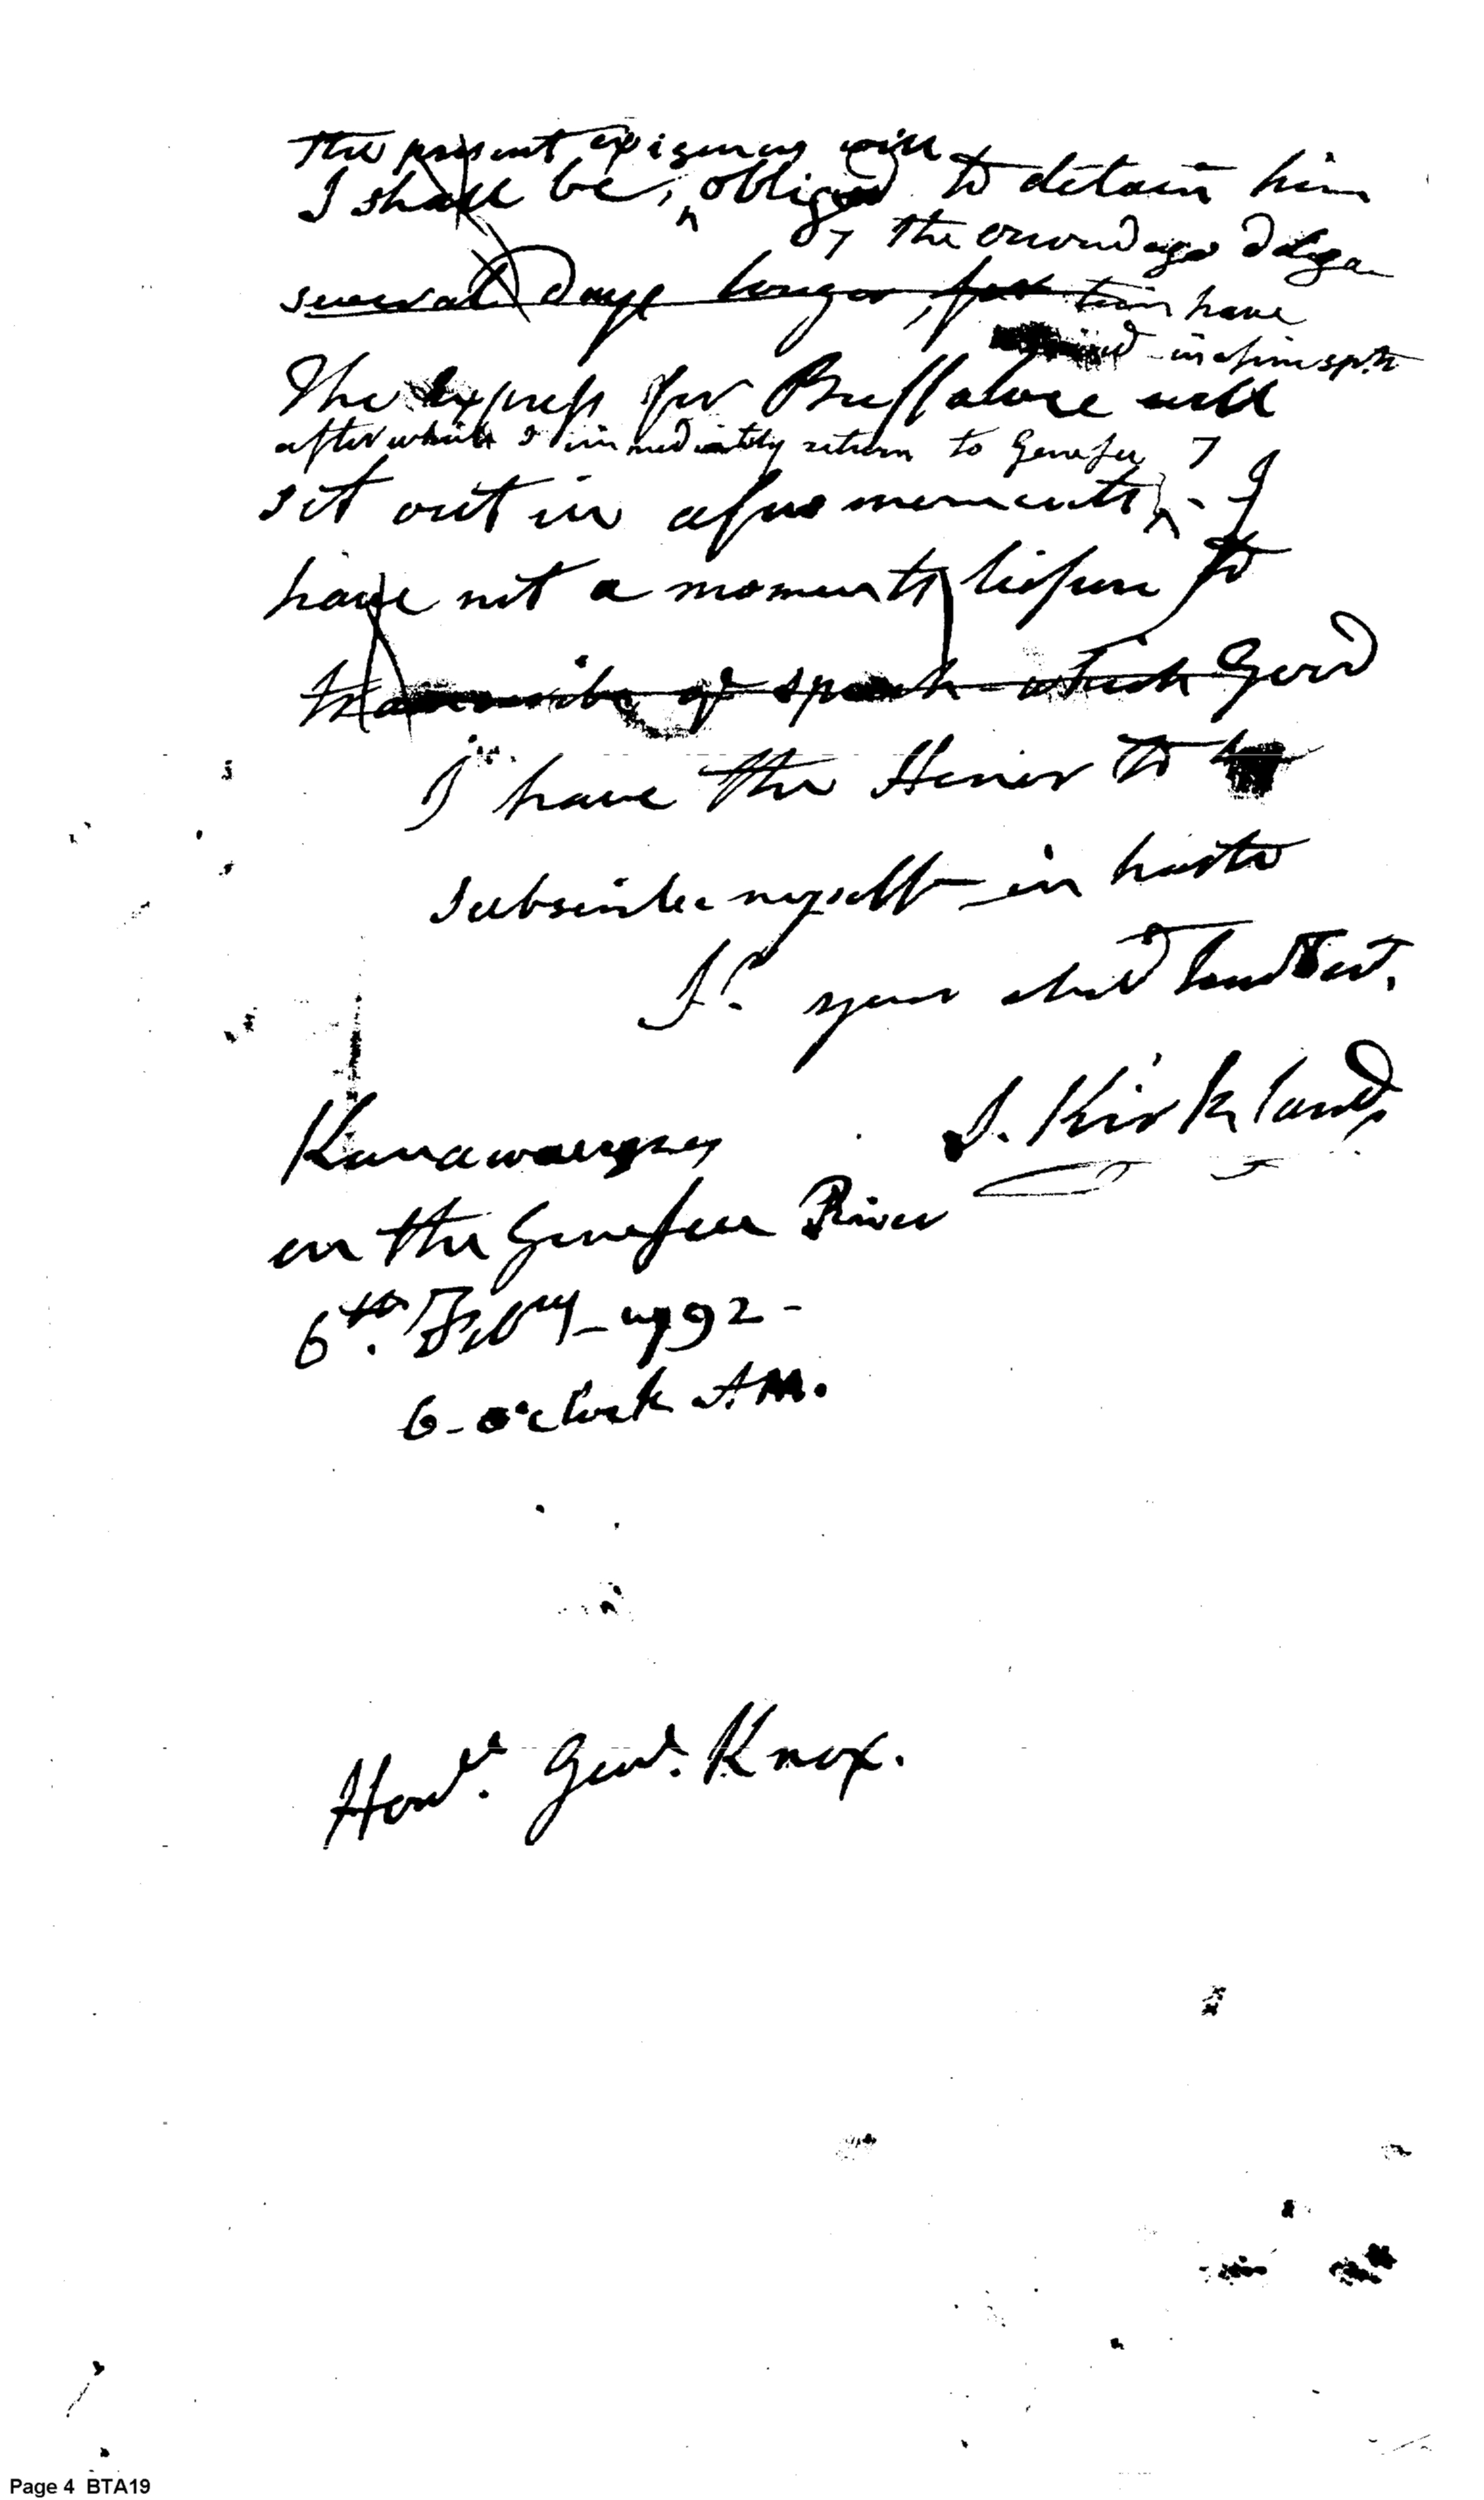 The present exigency will
I shall be, obliged to detain him
7 the onondago Delga
several Days longer, for tion have
in 
The Express for Buffaloe will
after which I immediately return to Genesee 7
set out in a few moments - I
have not a moments leisure to
of speech which Good
I have the Honor to
subscribe myself - in haste
Sr. your
S. Kirkland
Kanawaugey
on the Genesee River
6th. Feby - 1792 -
6 - o'clock A.M.
Honl. Genl. Knox.
Page 4 BTA19